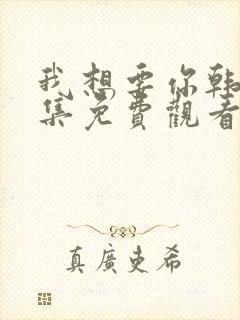 我想要你韩
集免費觀看
真廣史希